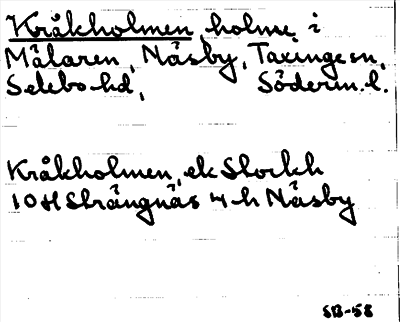 Kråkholmen, holme i
Mälaren, Näsby, Taxinge sn,
Selebo hd, Söderm. l.
Kråkholmen, ek Stockh
10H Strängnäs 4h Näsby
SB-58